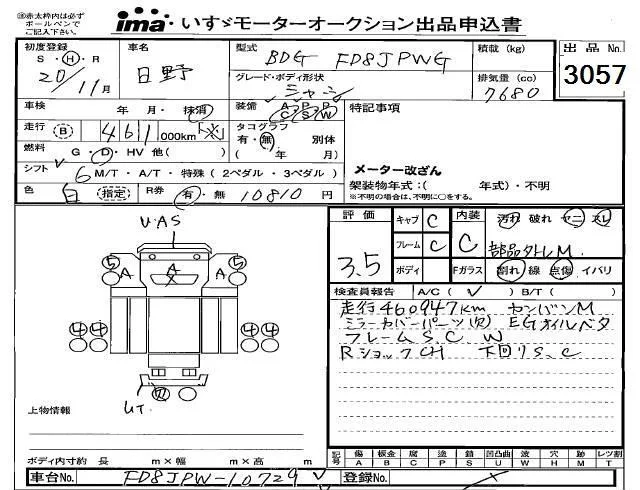 ※赤太枠内は必ずボールペンでご記入下さい。
ima いすゞモーターオークション出品申込書
初度登録 S・H・R 20/11月
車名 日野
型式 BDG FD8JPWG
グレード・ボディ形状 シャシ
積載(kg)
排気量(cc) 7680
出品No. 3057
車検 年 月・抹消
装備 A P P C S W
特記事項
走行 B 461 ,000km
タコグラフ 有・無 別体
( 年 月)
燃料 G・D・HV 他( )
メーター改ざん
シフト 6 M/T・A/T・特殊(2ペダル・3ペダル)
架装物年式:( 年式)・不明
※不明の場合は、不明に○をする。
色 白 (指定) R券 有・無 10810円
評価 3.5
キャブ C
フレーム C
ボディ
内装 C
Fガラス
汚れ 破れ ヤニ スレ
部品外レM
割れ 線 点傷 イバリ
検査員報告 A/C( ✓ ) B/T( )
走行460947km センバンM
ミラーカバーパーツ(欠) EGオイルベタ
フレームS.C.W
RショックCH 下回りS.C
U.AS
5 A A X A 5
4 4 4 4
UT.
上物情報
ボディ内寸約 長 m×幅 m×高 m
記号 傷 A 板金 B 腐 C 塗 P 錆 S 凹凸曲 U 波 W 穴 H 跡 M レンズ割 T
車台No. FD8JPW-10729 ✓
登録No.